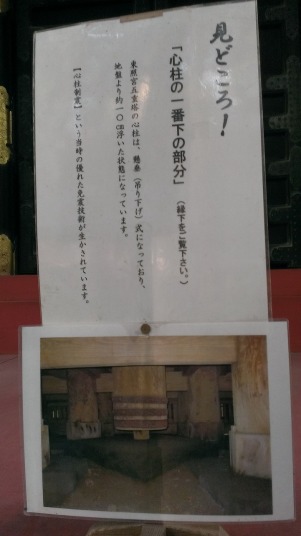 見どころ！
「心柱の一番下の部分」（縁下をご覧下さい。）
東照宮五重塔の心柱は、懸垂（吊り下げ）式になっており、
地盤より約一〇㎝浮いた状態になっています。
【心柱制震】という当時の優れた免震技術が生かされています。